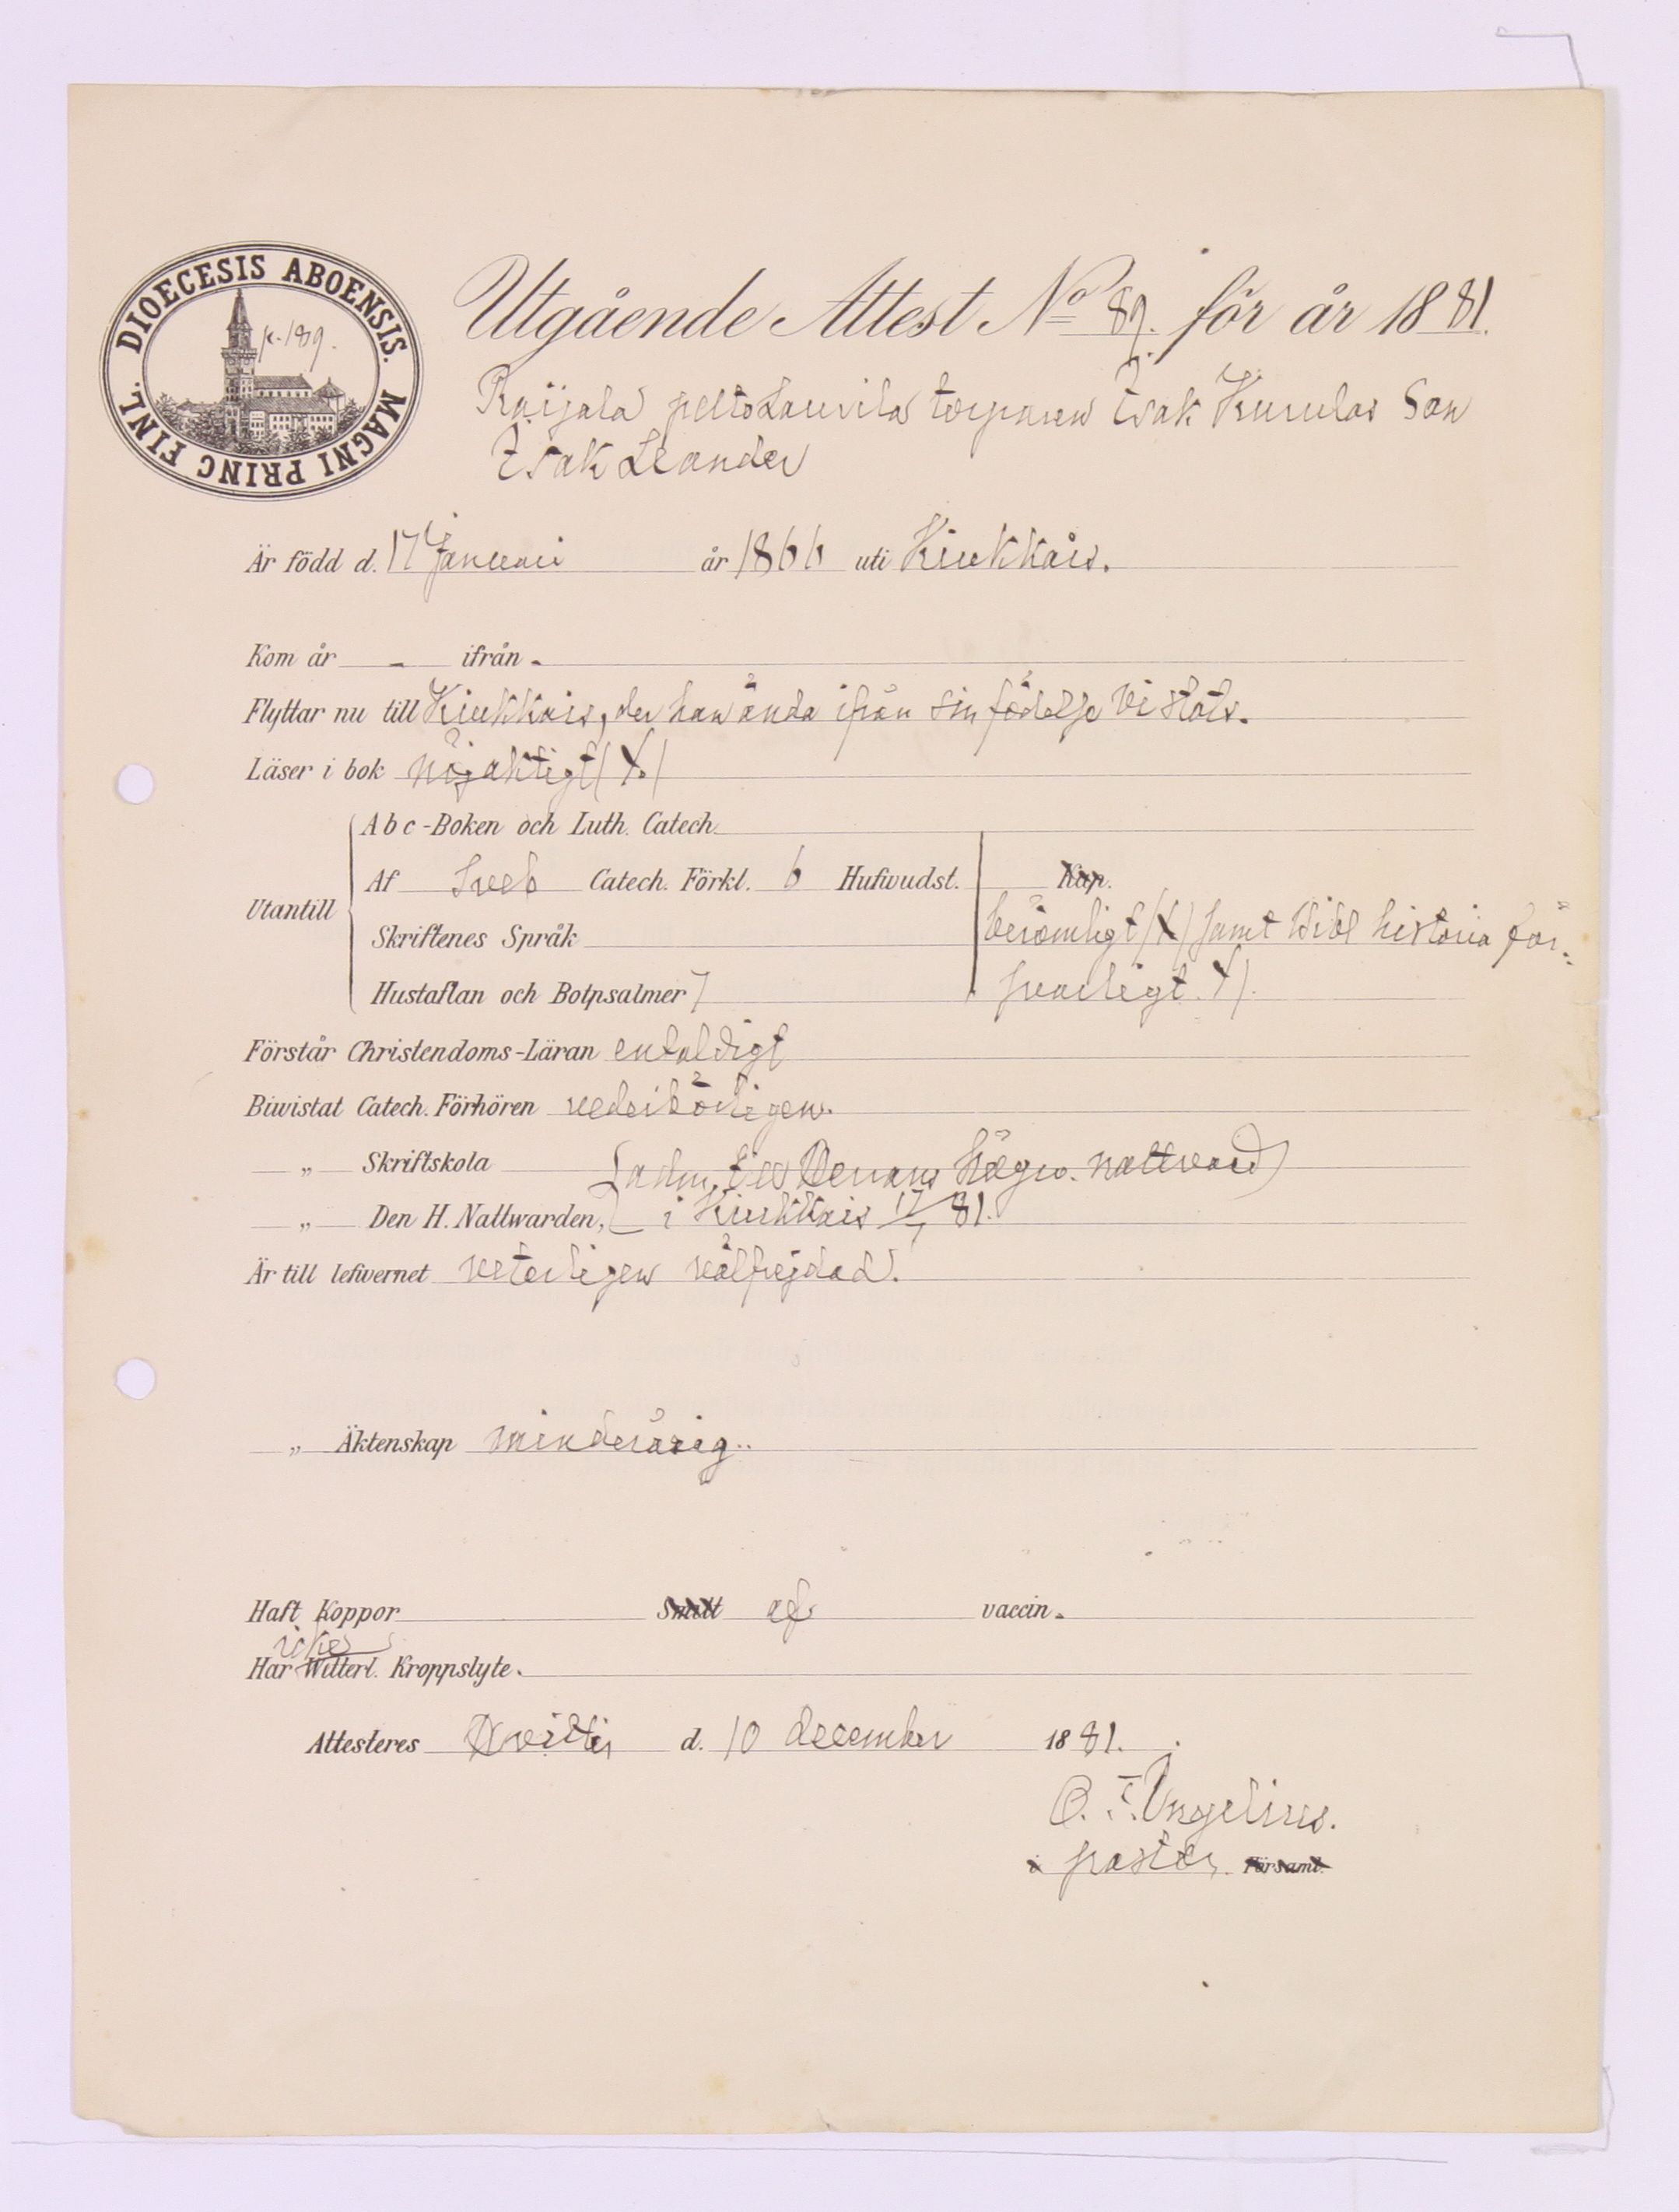 DIOECESIS ABOENSIS. MAGNI PRINC FINL.
k. 189.
Utgående Attest No 89. för år 1881.
Raijala peltoLauvila torparen Isak Kuculas Son
Isak Leander
Är född d. 17 Januari år 1866 uti Kiukkais.
Kom år - ifrån -
Flyttar nu till Kiukkais, der han ända ifrån sin födelse vistats.
Läser i bok nöjaktigt (X.)
Abc-Boken och Luth. Catech.
Af Sveb Catech. Förkl. 6 Hufwudst. Kap.
Utantill
Skriftenes Språk berömligt (X) samt bibl historia för-
Hustaflan och Botpsalmer 7 svarligt X).
Förstår Christendoms-Läran enfaldigt
Biwistat Catech. Förhören vederbörligen.
„ Skriftskola (adm. till Herrans högv. nattvard)
„ Den H. Nattwarden, i Kiukkais 17/7 81.
Är till lefwernet veterligen välfrejdad.
„ Äktenskap minderårig..
Haft Koppor Smitt af vaccin.
icke
Har Witterl. Kroppslyte.
Attesteres Hvittis d. 10 december 1881.
C. F. Ungelius.
i pastor. Församl.